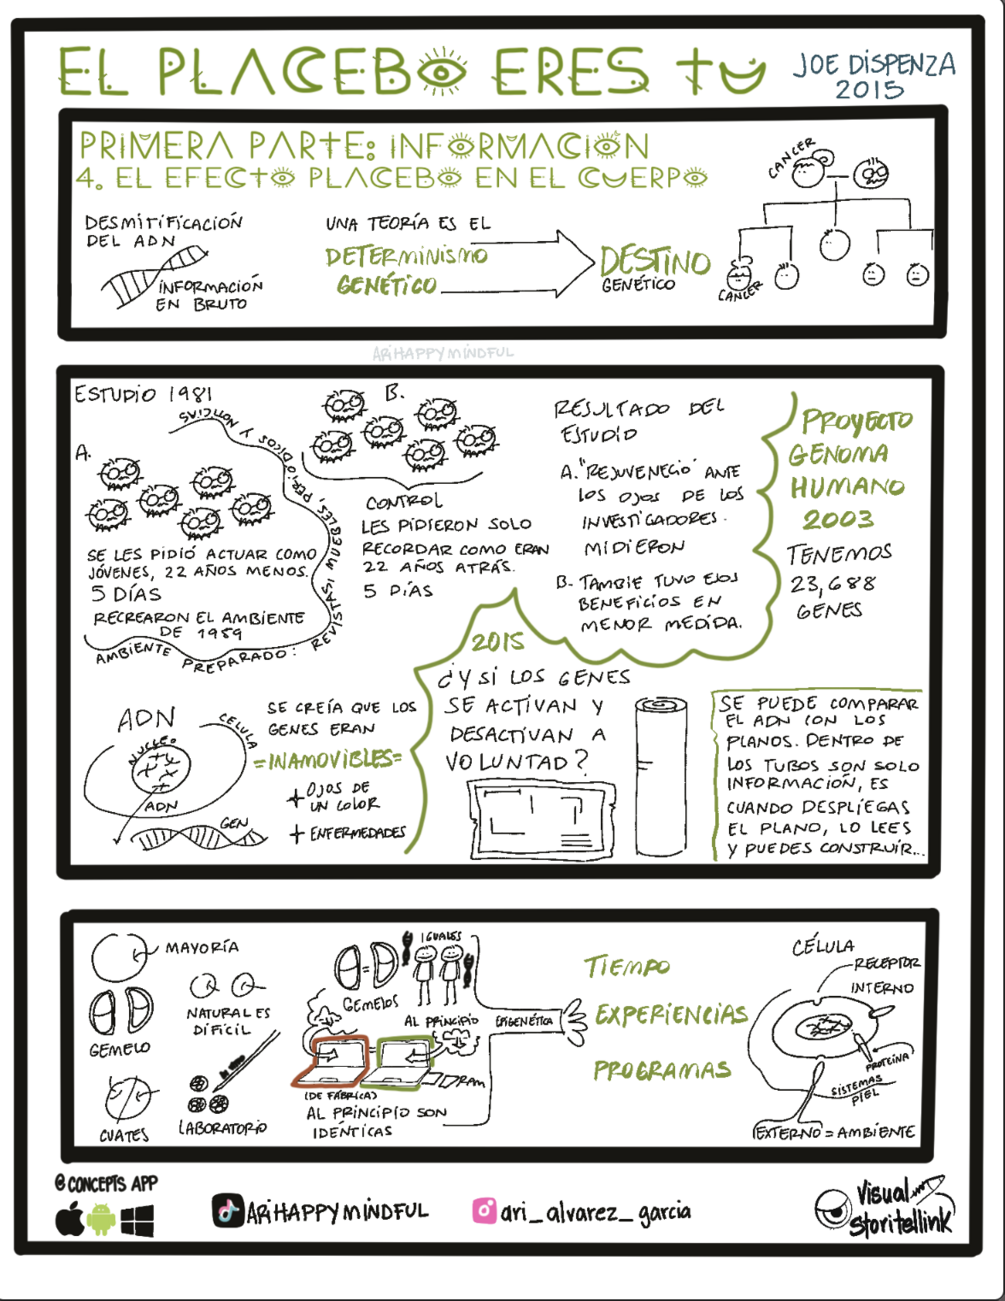 EL PLACEBO ERES TU
JOE DISPENZA
2015
PRIMERA PARTE: INFORMACIÓN
4. EL EFECTO PLACEBO EN EL CUERPO
DESMITIFICACIÓN
DEL ADN
INFORMACIÓN
EN BRUTO
UNA TEORÍA ES EL
DETERMINISMO
GENÉTICO
DESTINO
GENÉTICO
CANCER
CANCER
ARIHAPPYMINDFUL
ESTUDIO 1981
A.
SE LES PIDIÓ ACTUAR COMO
JÓVENES, 22 AÑOS MENOS.
5 DÍAS
RECREARON EL AMBIENTE
DE 1959
AMBIENTE PREPARADO: REVISTAS, MUEBLES, PERIODICOS Y NOTICIAS
B.
CONTROL
LES PIDIERON SOLO
RECORDAR COMO ERAN
22 AÑOS ATRÁS.
5 DÍAS
RESULTADO DEL
ESTUDIO
A. "REJUVENECIO" ANTE
LOS OJOS DE LOS
INVESTIGADORES.
MIDIERON
B. TAMBIE TUVO
BENEFICIOS EN
MENOR MEDIDA.
PROYECTO
GENOMA
HUMANO
2003
TENEMOS
23,688
GENES
ADN
CÉLULA
NUCLEO
ADN
GEN
SE CREÍA QUE LOS
GENES ERAN
=INAMOVIBLES=
+ OJOS DE
UN COLOR
+ ENFERMEDADES
2015
¿Y SI LOS GENES
SE ACTIVAN Y
DESACTIVAN A
VOLUNTAD?
SE PUEDE COMPARAR
EL ADN CON LOS
PLANOS. DENTRO DE
LOS TUBOS SON SOLO
INFORMACIÓN, ES
CUANDO DESPLIEGAS
EL PLANO, LO LEES
Y PUEDES CONSTRUIR...
MAYORÍA
GEMELO
CUATES
NATURALES
DIFICIL
LABORATORIO
IGUALES
GEMELOS
AL PRINCIPIO
RAM
(DE FÁBRICA)
AL PRINCIPIO SON
IDÉNTICAS
EPIGENÉTICA
TIEMPO
EXPERIENCIAS
PROGRAMAS
CÉLULA
RECEPTOR
INTERNO
PROTEÍNA
SISTEMAS
PIEL
EXTERNO = AMBIENTE
@CONCEPTS APP
ARIHAPPYMINDFUL
ari_alvarez_garcia
Visual
Storitellink